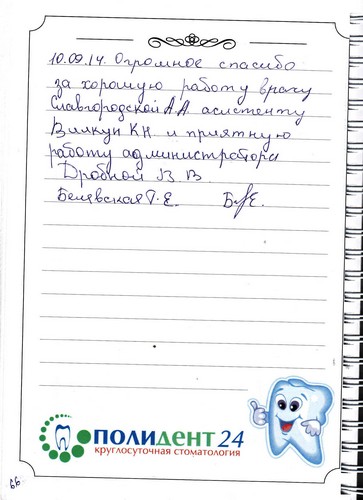 10.09.14. Огромное спасибо
за хорошую работу врачу
Славгородской А.А. асистенту
Вликун К.Н. и приятную
работу администратора
Дробной В. В.
Белявская Г. Е.
ПОЛИДЕНТ 24
круглосуточная стоматология
66